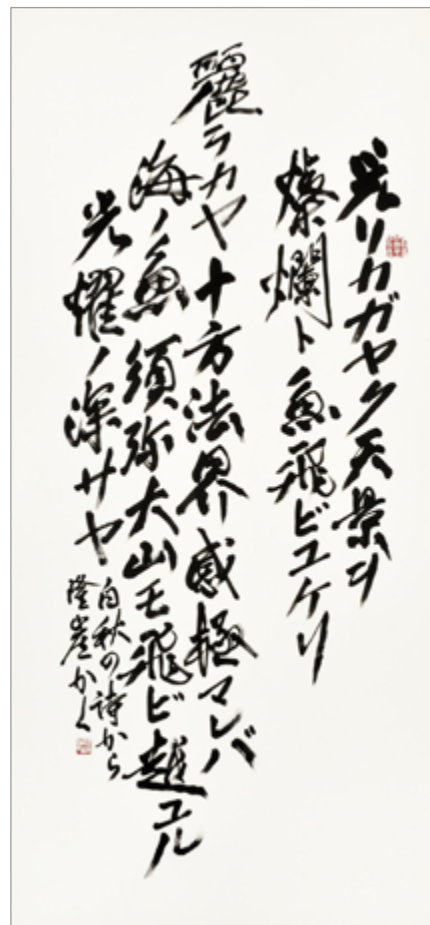 光リカガヤク天景ヲ
燦爛ト魚飛ビユケリ
麗ラカヤ十方法界感極マレバ
海ノ魚須弥大山モ飛ビ越ユル
光耀ノ深サヤ
白秋の詩から
隆崖かく